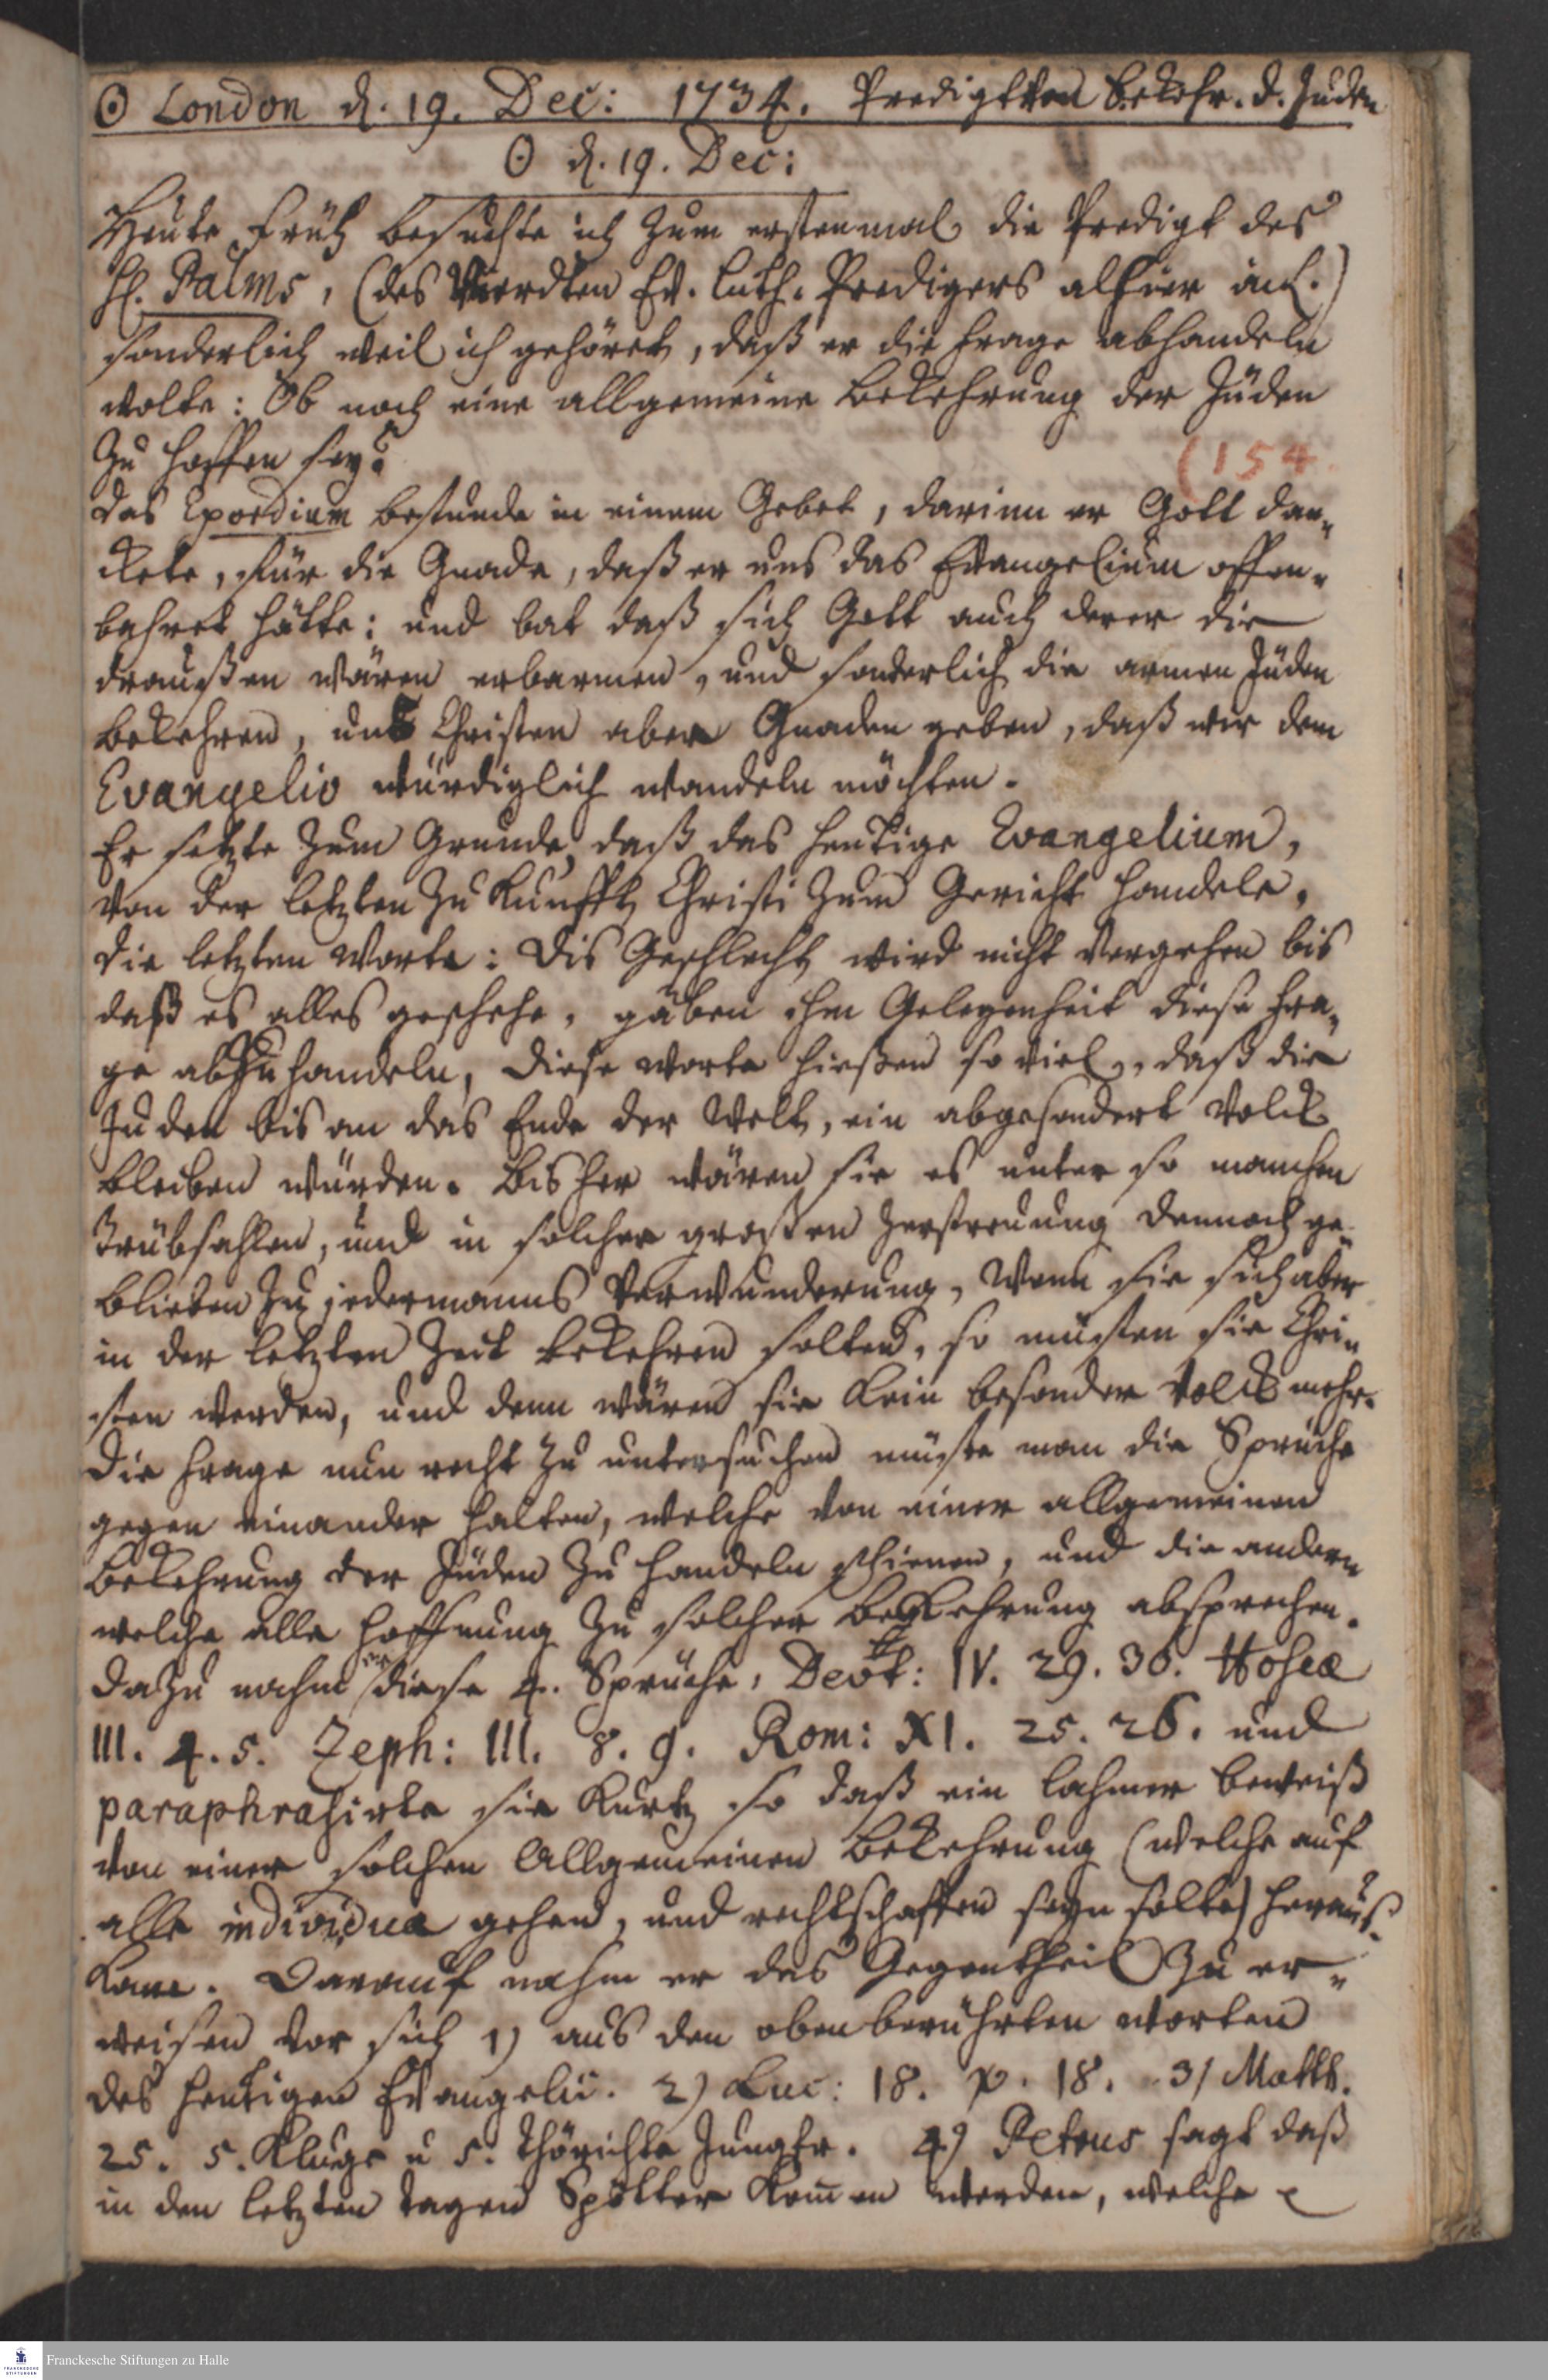 ☉ London d. 19. Dec: 1734. Predigt von Bekehr. d. Juden
☉ d. 19. Dec:
Heute früh besuchte ich zum erstenmal die Predigt des
H. Palms, (des Vierdten Ev. Luth. Predigers alhier
sonderlich weil ich gehöret, daß er die Frage abhandeln
wolte: Ob noch eine allgemeine Bekehrung der Jüden
zu hoffen sey?
(154.
Das Exordium bestunde in einem Gebet, darinn er Gott dan-
ckete, für die Gnade, daß er uns das Evangelium offen-
bahret hätte: und bat daß sich Gott auch derer die
draußen wären erbarmen, und sonderlich die armen Jüden
bekehren, uns Christen aber Gnaden geben, daß wir dem
Evangelio würdiglich wandeln möchten.
Er setzte zum Grunde, daß das heutige Evangelium,
von der letzten Zukunfft Christi zum Gericht handele,
die letzten Worte: Dis Geschlecht wird nicht vergehen bis
daß es alles geschehe, gäben ihm Gelegenheit diese Fra-
ge abzuhandeln, diese Worte hießen so viel, daß die
Juden bis an das Ende der Welt, ein abgesondert Volck
bleiben würden. Bisher wären sie es unter so manchen
Trübsahlen, und in solcher großen Zerstreuung dennoch ge-
blieben zu jedermanns Verwunderung, Wenn sie sich aber
in der letzten Zeit bekehren solten, so müsten sie Chri-
sten werden, und denn wären sie kein besonder Volck mehr.
Die Frage nun recht zu untersuchen müste man die Sprüche
gegen einander halten, welche von einer allgemeinen
Bekehrung der Jüden zu handeln schienen, und die andern
welche alle Hoffnung zu solcher Bekehrung absprechen.
Dazu nahm er diese 4. Sprüche, Deut: IV. 29. 30. Hoseæ
III. 4. 5. Zeph: III. 8. 9. Rom: XI. 25. 26. und
paraphrasirte sie kurtz so daß ein lahmer Beweiß
von einer solchen Allgemeinen Bekehrung (welche auf
alle individua gehen, und rechtschaffen seyn solte) heraus-
kam. Darauf nahm er das Gegentheil zu er-
weisen vor sich 1) aus den obenberührten Worten
des heutigen Evangelii. 2) Luc: 18. v. 18. 3) Matth.
25. 5. Kluge u 5. thörichte Jungfr. 4) Petrus sagt daß
in den letzten Tagen Spötter kom̄en werden, welche